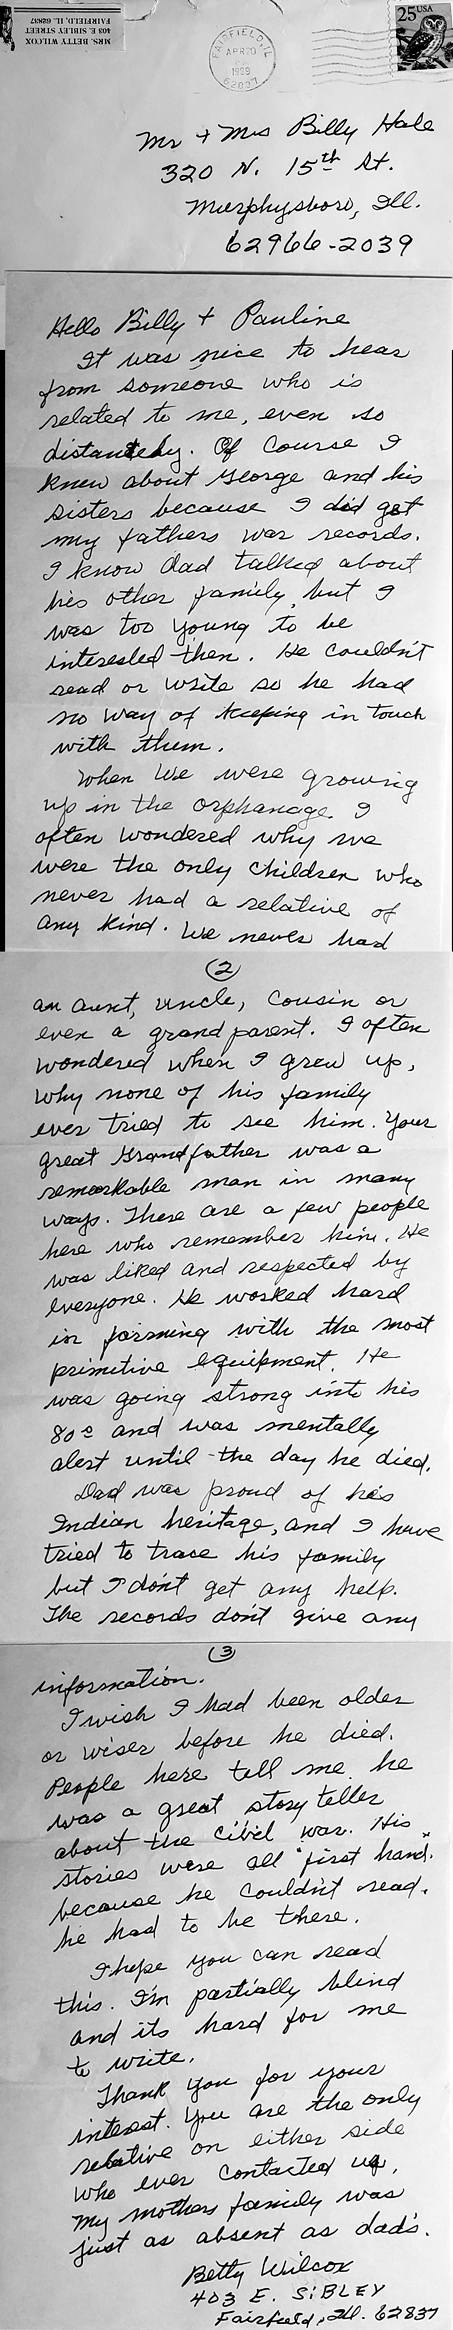 MRS. BETTY WILCOX
403 E SIBLEY STREET
FAIRFIELD, IL 62837
FAIRFIELD, IL
APR 20
1989
62837
25 USA
Mr + Mrs Billy Hale
320 N. 15th St.
Murphysboro, Ill.
62966-2039
Hello Billy + Pauline
It was nice to hear
from someone who is
related to me, even so
distantely. Of course I
knew about George and his
sisters because I did get
my fathers war records.
I know dad talked about
his other family, but I
was too young to be
interested then. He couldn't
read or write so he had
no way of keeping in touch
with them.
When we were growing
up in the orphanage I
often wondered why we
were the only children who
never had a relative of
any kind. We never had
(2)
an aunt, uncle, cousin or
even a grandparent. I often
wondered when I grew up,
why none of his family
ever tried to see him. Your
great Grandfather was a
remarkable man in many
ways. There are a few people
here who remember him. He
was liked and respected by
everyone. He worked hard
in farming with the most
primitive equipment. He
was going strong into his
80s and was mentally
alert until the day he died.
Dad was proud of his
Indian heritage, and I have
tried to trace his family
but I don't get any help.
The records don't give any
(3)
information.
I wish I had been older
or wiser before he died.
People here tell me he
was a great story teller
about the civil war. His
stories were all "first hand".
because he couldn't read.
he had to be there.
I hope you can read
this. I'm partially blind
and its hard for me
to write.
Thank you for your
interest. You are the only
relative on either side
who ever contacted us.
My mothers family was
just as absent as dad's.
Betty Wilcox
403 E. SIBLEY
Fairfield, Ill. 62837